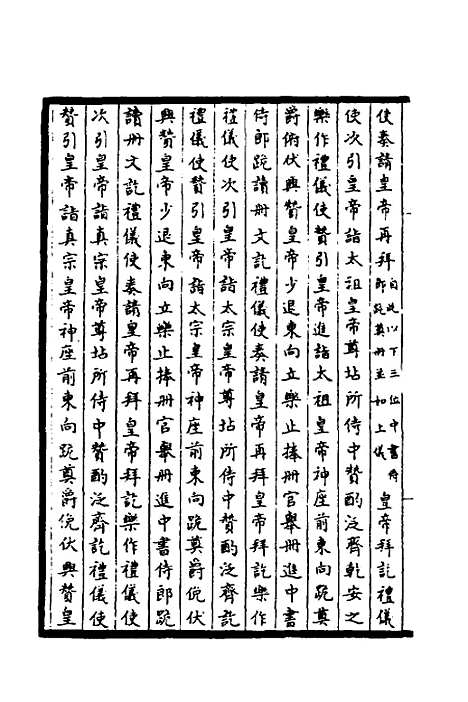 使奏請皇帝再拜自此以下三位中書侍郎跪奠冊並如上儀皇帝拜訖禮儀
使次引皇帝詣太祖皇帝尊坫所侍中贊酌泛齊乾安之
樂作禮儀使贊引皇帝進詣太祖皇帝神座前東向跪奠
爵俯伏興贊皇帝少退東向立樂止捧冊官舉冊進中書
侍郎跪讀冊文訖禮儀使奏請皇帝再拜皇帝拜訖樂作
禮儀使次引皇帝詣太宗皇帝尊坫所侍中贊酌泛齊訖
禮儀使贊引皇帝詣太宗皇帝神座前東向跪奠爵俛伏
興贊皇帝少退東向立樂止捧冊官舉冊進中書侍郎跪
讀冊文訖禮儀使奏請皇帝再拜皇帝拜訖樂作禮儀使
次引皇帝詣真宗皇帝尊坫所侍中贊酌泛齊訖禮儀使
贊引皇帝詣真宗皇帝神座前東向跪奠爵俛伏興贊皇